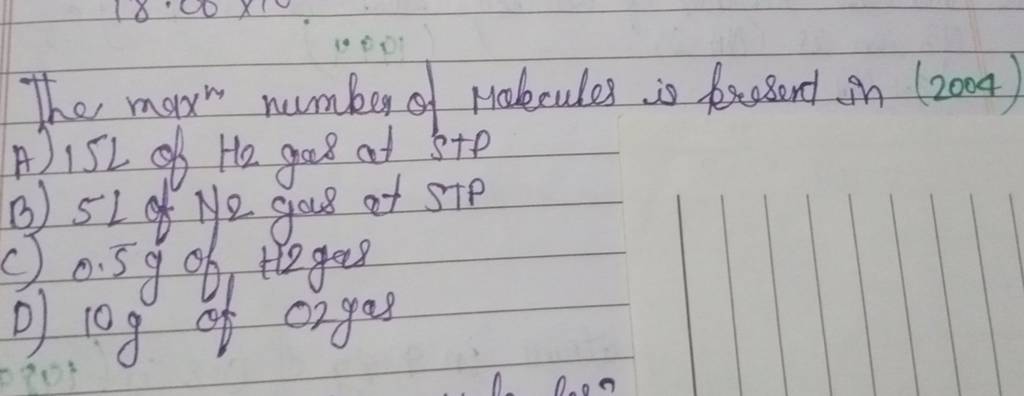 18.06 x10
The maxm number of Molecules is present in (2004)
A) 15L of H2 gas at STP
B) 5L of N2 gas at STP
C) 0.5g of H2 gas
D) 10g of O2 gas